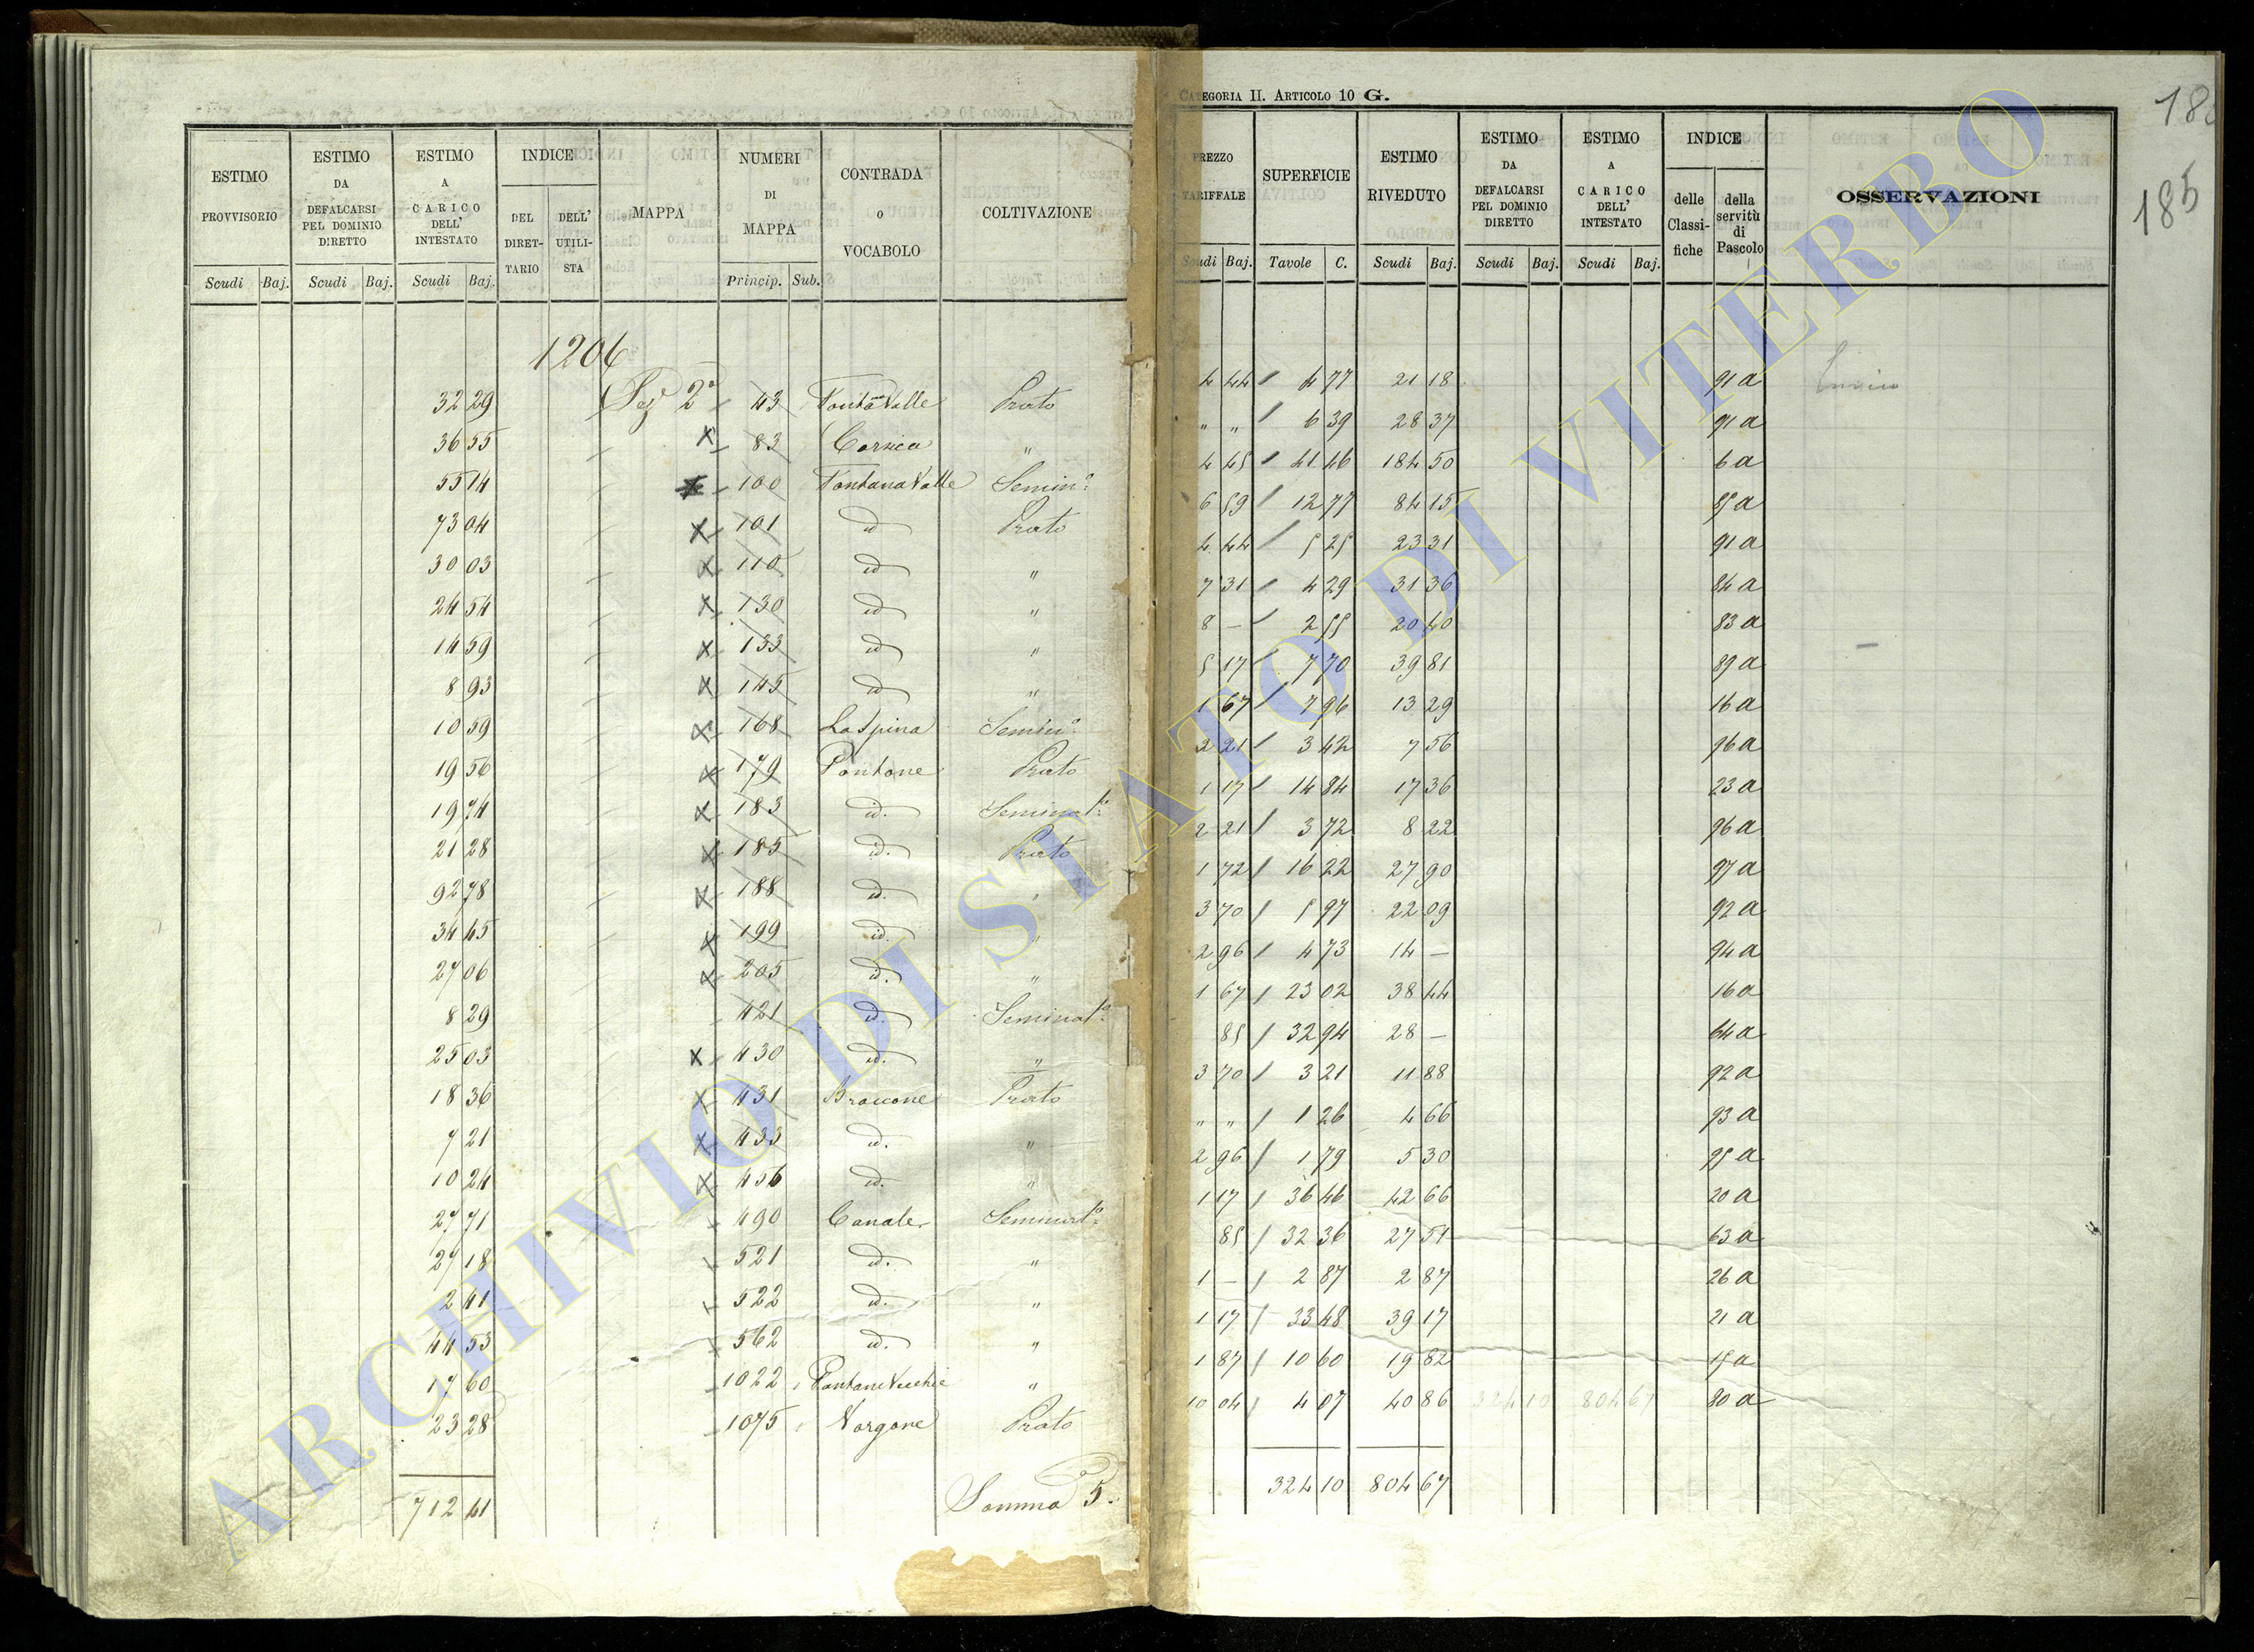 CATEGORIA II. ARTICOLO 10 G.
185
ESTIMO PROVVISORIO
ESTIMO DA DEFALCARSI PEL DOMINIO DIRETTO
ESTIMO A CARICO DELL' INTESTATO
INDICE
DEL DIRET-TARIO
DELL' UTILI-STA
MAPPA
NUMERI DI MAPPA
CONTRADA O VOCABOLO
COLTIVAZIONE
PREZZO TARIFFALE
SUPERFICIE
ESTIMO RIVEDUTO
ESTIMO DA DEFALCARSI PEL DOMINIO DIRETTO
ESTIMO A CARICO DELL' INTESTATO
INDICE
delle Classi-fiche
della servitù di Pascolo
OSSERVAZIONI
Scudi Baj. Scudi Baj. Scudi Baj. Princip. Sub. Scudi Baj. Tavole C. Scudi Baj. Scudi Baj. Scudi Baj.
1206
32 29 Sez 2ª 43 Fontana Valle Prato 4 44 4 77 21 18 91 a
36 55 83 Corsica " " " 6 39 28 37 91 a
55 14 100 Fontana Valle Semin.º 4 45 41 46 184 50 6 a
73 04 101 id Prato 6 59 12 77 84 15 85 a
30 03 110 id " 4 44 5 25 23 31 91 a
24 54 130 id " 7 31 4 29 31 36 84 a
14 59 133 id " 8 — 2 55 20 40 83 a
8 93 145 id " 5 17 7 70 39 81 89 a
10 59 168 La Spina Semin.º 1 67 7 96 13 29 16 a
19 56 179 Pantane Prato 2 21 3 42 7 56 96 a
19 74 183 id. Seminat.º 1 17 14 84 17 36 23 a
21 28 185 id. Prato 2 21 3 72 8 22 96 a
92 78 188 id. " 1 72 16 22 27 90 97 a
34 45 199 id. " 3 70 5 97 22 09 92 a
27 06 205 id. " 2 96 4 73 14 — 94 a
8 29 421 id. Seminat.º 1 67 23 02 38 44 16 a
25 03 430 id. " 85 32 94 28 — 64 a
18 36 431 Braccone Prato 3 70 3 21 11 88 92 a
7 21 433 id. " " " 1 26 4 66 93 a
10 24 456 id. " 2 96 1 79 5 30 95 a
27 71 490 Canale Seminat.º 1 17 36 46 42 66 20 a
27 18 521 id. " 85 32 36 27 51 63 a
2 41 522 id. " 1 — 2 87 2 87 26 a
44 53 562 id. " 1 17 33 48 39 17 21 a
17 60 1022 Pantane Vecchie " 1 87 10 60 19 82 15 a
23 28 1075 Vorgone Prato 10 04 4 07 40 86 324 10 804 67 80 a
712 41 Somma 5. 324 10 804 67
ARCHIVIO DI STATO DI VITERBO